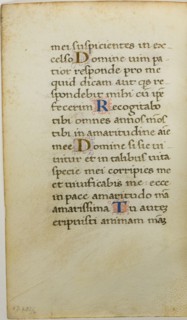 mei suspicientes in ex
celso Domine uim pa
tior responde pro me
quid dicam aut qs re
spondebit mihi cu ipe
fecerim Recogitabo
tibi omnes annos mos
tibi in amaritudine aie
mee Domine si sic ui
uitur et in talibus uita
specie mei corripies me
et uiuificabis me ecce
in pace amaritudo ma
amarissima Tu autez
eripuisti animam mag